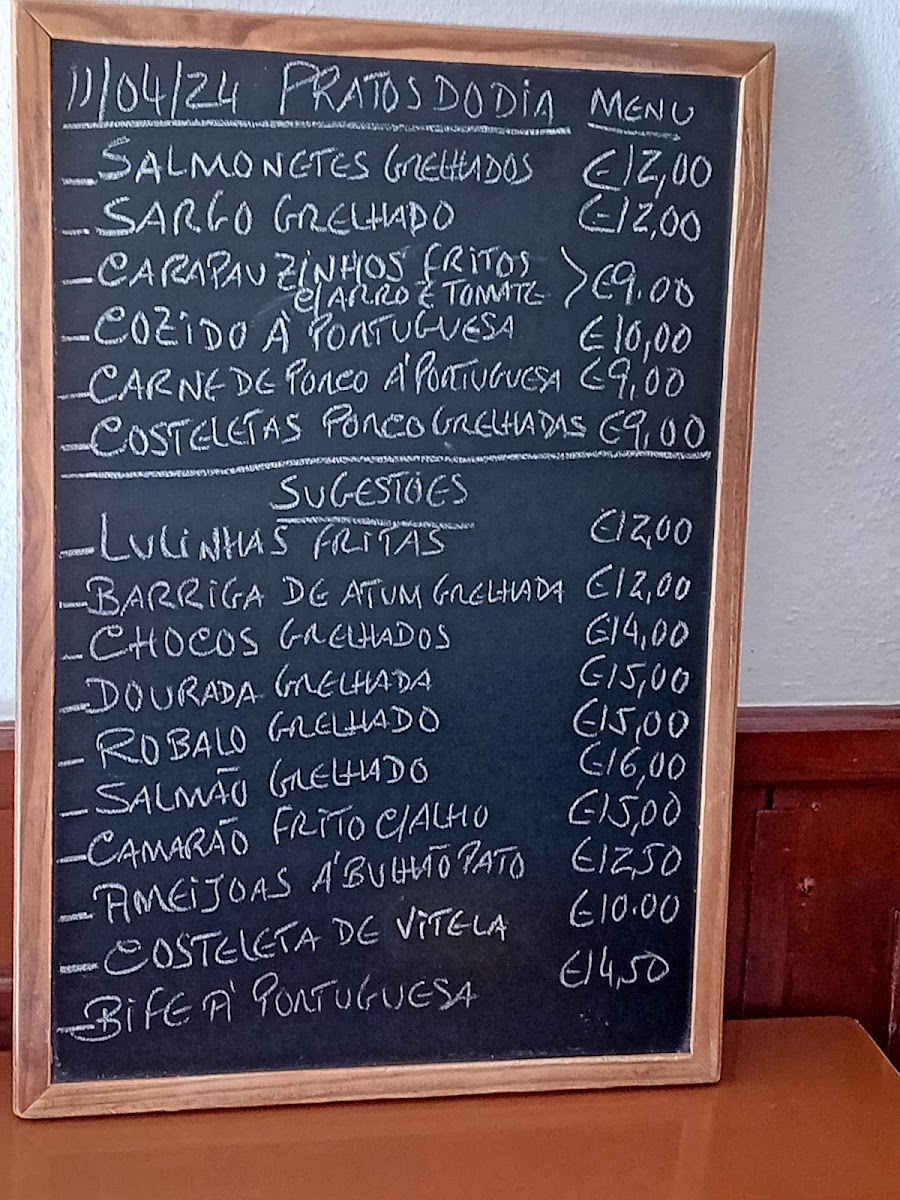 11/04/24 PRATOS DO DIA MENU
- SALMONETES GRELHADOS €12,00
- SARGO GRELHADO €12,00
- CARAPAUZINHOS FRITOS
C/ARROZ TOMATE > €9.00
- COZIDO À PORTUGUESA €10,00
- CARNE DE PORCO Á PORTUGUESA €9,00
- COSTELETAS PORCO GRELHADAS €9,00
SUGESTÕES
- LULINHAS FRITAS €12,00
- BARRIGA DE ATUM GRELHADA €12,00
- CHOCOS GRELHADOS €14,00
- DOURADA GRELHADA €15,00
- ROBALO GRELHADO €15,00
- SALMÃO GRELHADO €16,00
- CAMARÃO FRITO C/ALHO €15,00
- AMEIJOAS Á BULHÃO PATO €12,50
- COSTELETA DE VITELA €10.00
- BIFE Á PORTUGUESA €14,50